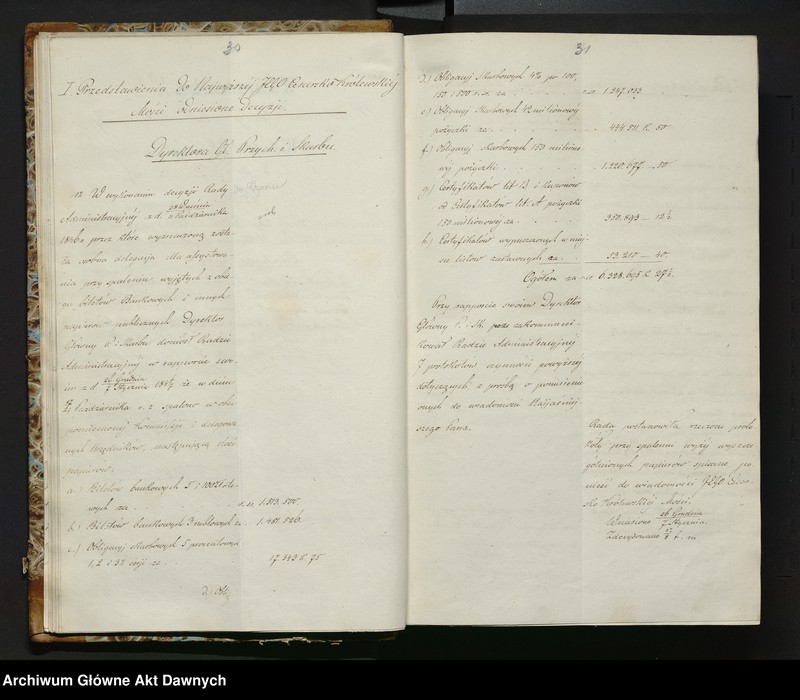 30
I Przedstawienia do Najwyższej JEGO Cesarsko Królewskiej
Mości odniesione Decyzji.
Dyrektora Gł. Przych. i Skarbu.
W wykonaniu decyzji Rady
Administracyjnej z d.
Października
przez które wyznaczoną zosta
ła osobna delegacja dla assystowa
nia przy spaleniu wyjętych z obie
gu biletów Bankowych i innych
papierów publicznych Dyrektor
Główny P. i Skarbu doniósł Radzie
Administracyjnej w rapporcie swo-
im z d. 26 Grudnia
7 Stycznia 1846/7 że w dniu
Października r. z. spalono w obec
pomienionej Kommissji i delegowa
nych Urzędników, następującą ilość
papierów:
a.) Biletów bankowych
wych za
b.) Biletów bankowych 3 rublowych za. 1.481.826.
c.) Obligacyj Skarbowych 5 procentowych
1, 2 i 3 serji za 17.343 k. 75
d.) Obli
31
d.) Obligacyj Skarbowych 4% po 100,
150 i 500 r.s. za r.s. 1.247.013
e.) Obligacyj Skarbowych 42 milionowej
pożyczki za 444.511 k. 50
f.) Obligacyj Skarbowych 150 miliono
wej pożyczki 1.220.677 — 50
g.) Certyfikatów lit. B i kuponów
od Certyfikatów lit. A pożyczki
150 milionowej za 350.843 — 12½
h.) Certyfikatów wypuszczonych w miej-
sce listów zastawnych za 53.210 — 40.
Ogółem za rs. 6.328.695 k. 27½.
Przy rapporcie swoim Dyrektor
Główny P. i Sk. zakommuni-
kował Radzie Administracyjnej
7 protokołów czynności powyższej
dotyczących z prośbą o pomieszcze
onych do wiadomości Najjaśniej
szego Pana.
Rada postanowiła rzeczone proto
koły przy spaleniu wyżej wyszcze
gólnionych papierów spisane po
nieść do wiadomości JEGO Cesar
sko Królewskiej Mości.
Wniesiono 26 Grudnia
7 Stycznia.
Zdecydowano
Archiwum Główne Akt Dawnych